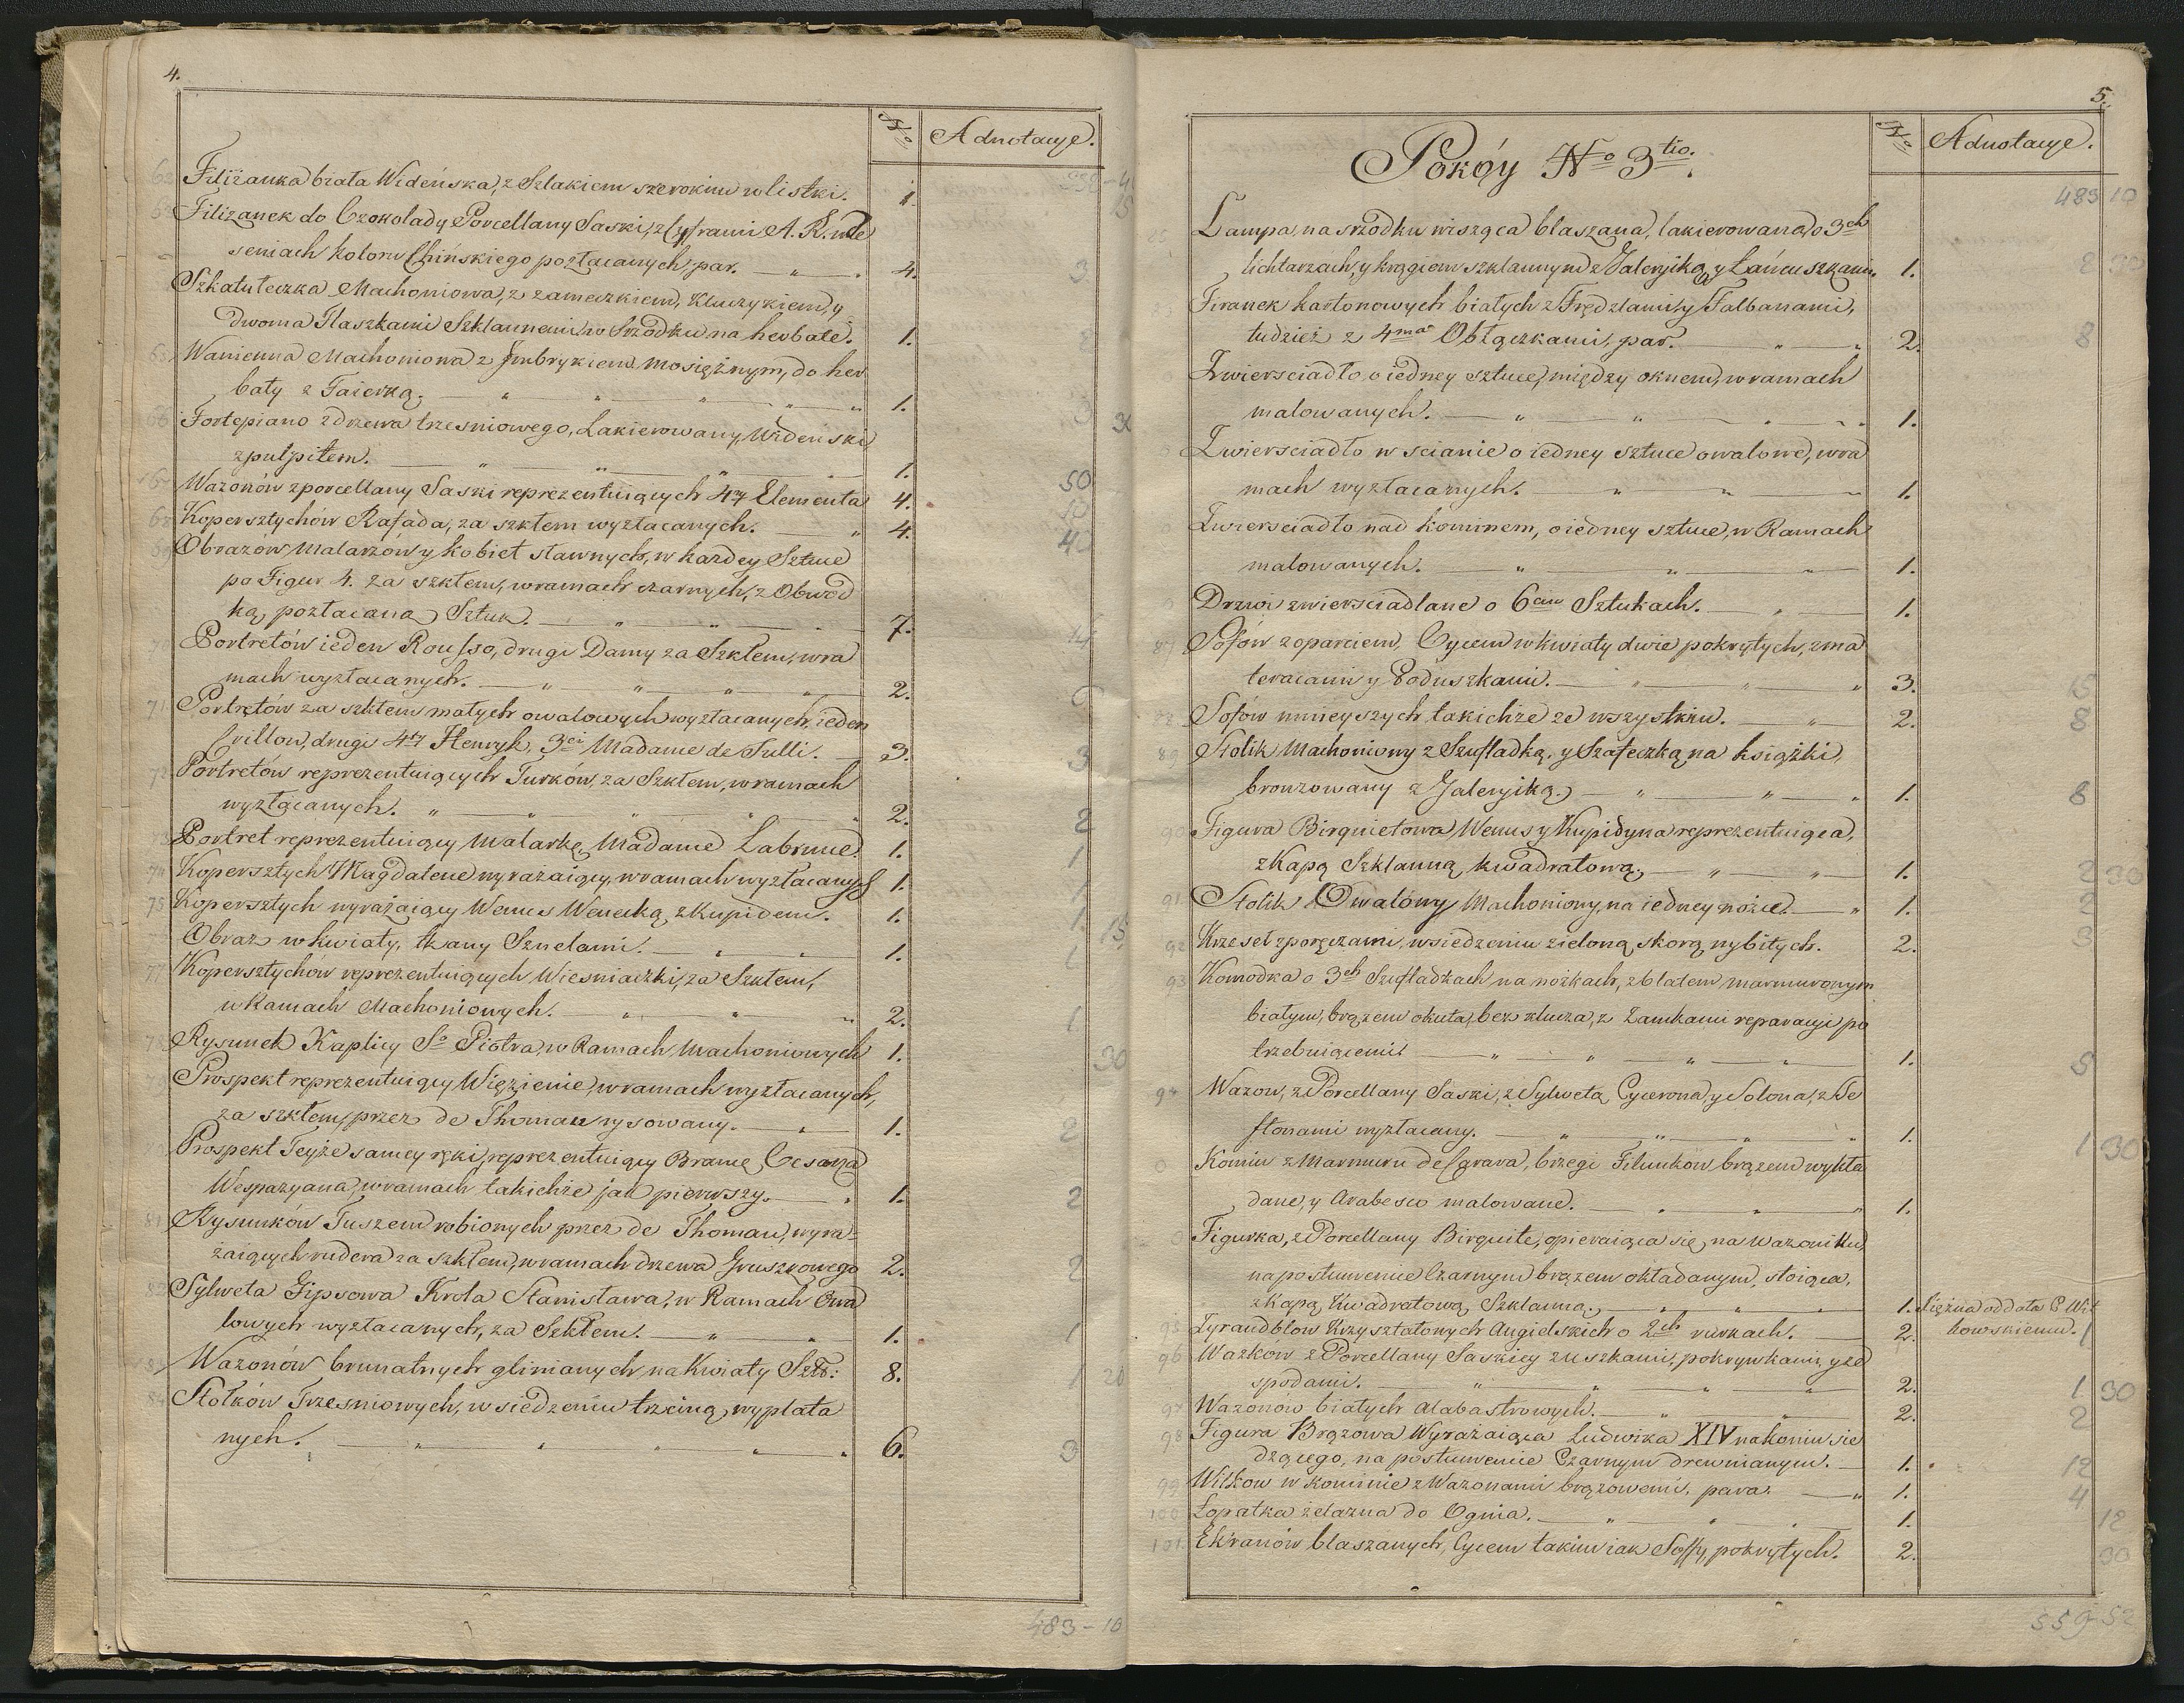 4.
No
Adnotacye.
62 Filiżanka biała Wideńska, z Szlakiem szerokim w listki. 1.
63 Filiżanek do Czokolady Porcellany Saski, z Cyframi A. R. w de
seniach koloru Chińskiego pozłacanych, par. 4. 3
Szkatułeczka Machoniowa, z zameczkiem, kluczykiem, y
dwoma Flaszkami Szklannemi w Srzodku na herbatę. 1.
65 Wanienna Machoniowa z Imbrykiem mosiężnym, do her
baty z Faierką. 1. 3
66 Fortepiano z drzewa trzesniowego, Lakierowany Wideński
z pulpitem. 1. 50
67 Wazonów z porcellany Saski reprezentuiących 4ry Elementa 4.
68 Kopersztychów Rafaela, za szkłem wyzłacanych. 4. 40
69 Obrazów, Malarzów y kobiet sławnych, w każdey Sztuce
po Figur 4. za szkłem, w ramach czarnych, z Obwód
ką pozłacaną Sztuk. 7.
Portretów ieden Rousso, drugi Damy za Szkłem, w ra
mach wyzłacanych. 2.
71 Portretów za szkłem małych owalowych wyzłacanych, ieden
Crillon, drugi 4ty Henryk, 3ci Madame de Sulli. 3. 3
72 Portretów reprezentuiących Turków, za Szkłem, w ramach
wyzłacanych. 2. 2
73 Portret reprezentuiący Malarkę Madame Labrune. 1. 1
74 Kopersztych Magdalene wyrażaiący, w ramach wyzłacanych 1. 1
75 Kopersztych wyrażaiący Wenus Wenecką z Kupidem. 1. 1. 15
Obraz w kwiaty, tkany Sznelami. 1. 1
77 Kopersztychów reprezentuiących Wiesniaczki, za Szkłem,
w Ramach Machoniowych. 2. 1
78 Rysunek Kaplicy So Piotra, w Ramach Machoniowych 1. 30
Prospekt reprezentuiący Więzienie, w ramach wyzłacanych,
za szkłem, przez de Thoman rysowany. 1. 2
Prospekt Teyże samey ręki, reprezentuiący Bramę Cesarza
Wespazyana, w ramach takichże jak pierwszy. 1. 2
81 Rysunków Tuszem robionych przez de Thoman, wyra
żaiących rudera za szkłem, w ramach drzewa Gruszkowego 2. 2
82 Sylweta Gipsowa Krola Stanisława, w Ramach Owa
lowych wyzłacanych, za Szkłem. 1. 1
83 Wazonów brunatnych glinianych na Kwiaty Szt: 8. 1 20
84 Stołków Trzesniowych, w siedzeniu trzciną wyplata
nych. 6. 3
483-10
5.
No
Adnotacye.
Pokóy No 3tio.
483 10
85 Lampa, na srzodku wisząca blaszana, lakierowana, o 3ch
lichtarzach, y kręgiem szklannym z Galeryiką y Łańcuszkami. 1.
Firanek kartonowych białych z Frędzlami, y Falbanami,
tudzież z 4ma Obłączkami, par. 2. 8
Zwiersciadło o iedney sztuce, między oknem, w ramach
malowanych. 1.
Zwierściadło w scianie o iedney sztuce owalowe, w ra
mach wyzłacanych. 1.
Zwierściadło nad kominem, o iedney sztuce, w Ramach
malowanych. 1.
Drzwi zwierściadlane o 6ciu Sztukach. 1.
87 Sofów z oparciem, Cycem w kwiaty dwie pokrytych, z ma
teracami y Poduszkami. 3. 15
88 Sofów mnieyszych takichże ze wszystkiem. 2. 8
89 Stolik Machoniowy z Szufladką, y Szafeczką na książki,
bronzowany z Galeryiką. 1. 8
90 Figura Birquietowa Wenus y Kupidyna reprezentuiąca,
z Kapą Szklanną kwadratową. 1. 2 30
91 Stolik Owalowy Machoniowy, na iedney nożce. 1. 2
92 Krzeseł z poręczami, w siedzeniu zieloną skorą wybitych. 2. 3
93 Komodka o 3ch Szufladkach na nóżkach, z blatem marmurowym
białym, brązem okuta, bez klucza, z Zamkami reparacyi po
trzebuiącemi. 1. 5
94 Wazon, z Porcellany Saski, z Sylwetą Cycerona, y Solona, z Fe
stonami wyzłacany. 1. 1 30
Komin z Marmuru de Carara, brzegi Filunków brązem wykła
dane, y Arabesco malowane. 1.
Figurka, z Porcellany Birquite, opieraiąca się, na Wazoniku,
na postumencie Czarnym brązem okładanym, stoiąca,
z Kapą Kwadratową Szklanną. 1. Xiężna oddała P. Wit
kowskiemu.
95 Zyrandolow Krzyształowych Angielskich o 2ch rurkach. 2. 1
96 Wazkow z Porcellany Saskiey z uszkami, pokrywkami, y ze
spodami. 2. 1 30
97 Wazonów białych Alabastrowych. 2. 2
98 Figura Brązowa Wyrażaiąca Ludwika XIV na koniu sie
dzącego, na postumencie Czarnym drewnianym. 1. 12
99 Wilkow w kominie z Wazonami brązowemi, para. 1. 4
100 Łopatka żelazna do Ognia. 1. 12
101 Ekranów blaszanych, Cycem takim iak Soffy, pokrytych. 2. 30
559-52